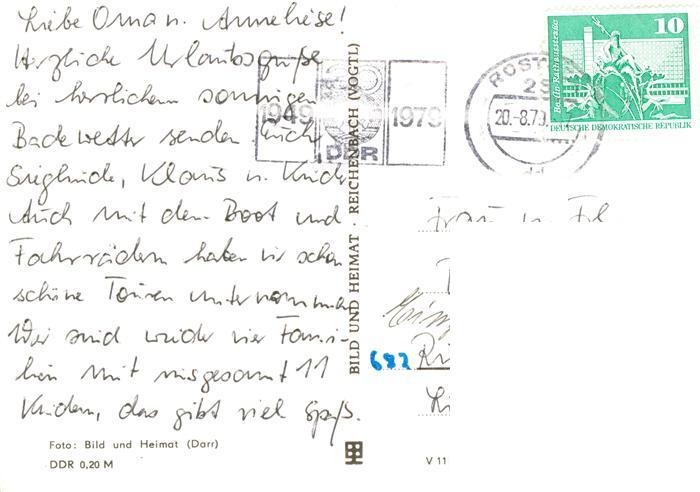 Liebe Oma u. Anneliese!
Herzliche Urlaubsgrüße
bei herrlichem sonnigen
Badewetter senden Euch
Sieglinde, Klaus u. Kinder
Auch mit dem Boot und
Fahrrädern haben wir schon
schöne Touren unternommen
Wir sind wieder vier Fami-
lien mit insgesamt 11
Kindern, das gibt viel Spaß.
Foto: Bild und Heimat (Darr)
DDR 0,20 M
BILD UND HEIMAT REICHENBACH (VOGTL)
1949 1979
DDR
ROSTOCK
20.-8.79
10
Berlin Rathausstrasse
DEUTSCHE DEMOKRATISCHE REPUBLIK
Frau u.
682
V 11